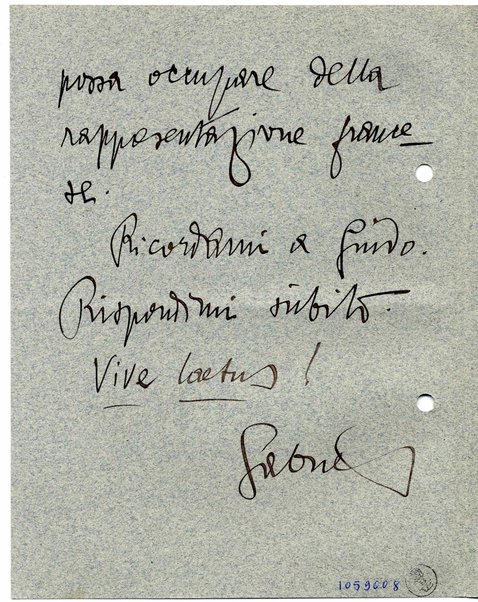 possa occupare della
rappresentazione france-
se.
Ricordami a Guido.
Rispondimi subito.
Vive laetus!
Gabriel
1059608